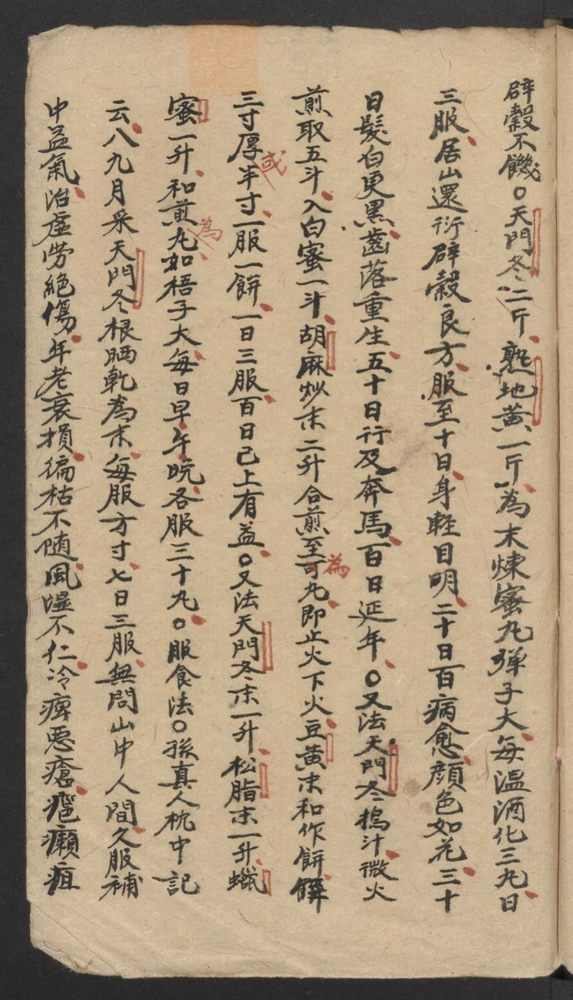 辟穀不饑○天門冬二斤、熟地黃一斤、為末煉蜜丸彈子大、每溫酒化三丸、日
三服、居山還衍辟穀良方、服至十日、身輕目明、二十日百病愈、顏色如花、三十
日髮白更黑、齒落重生、五十日行及奔馬、百日延年○又法天門冬搗汁、微火
煎取五斗、入白蜜一斗、胡麻炒末二升合煎至可為丸、即止火下火豆黃末和作餅、
三寸厚半寸、一服一餅、一日三服、百日已上有益○又法天門冬末一升、松脂末一升、蠟
蜜一升、和煎為丸如梧子大、每日早午晚各服三十丸○服食法○孫真人枕中記
云、八九月采天門冬根晒乾為末、每服方寸七日三服、無問山中人間久服補
中益氣、治虛勞絕傷、年老衰損、偏枯不隨、風濕不仁、冷痹惡瘡癰疽